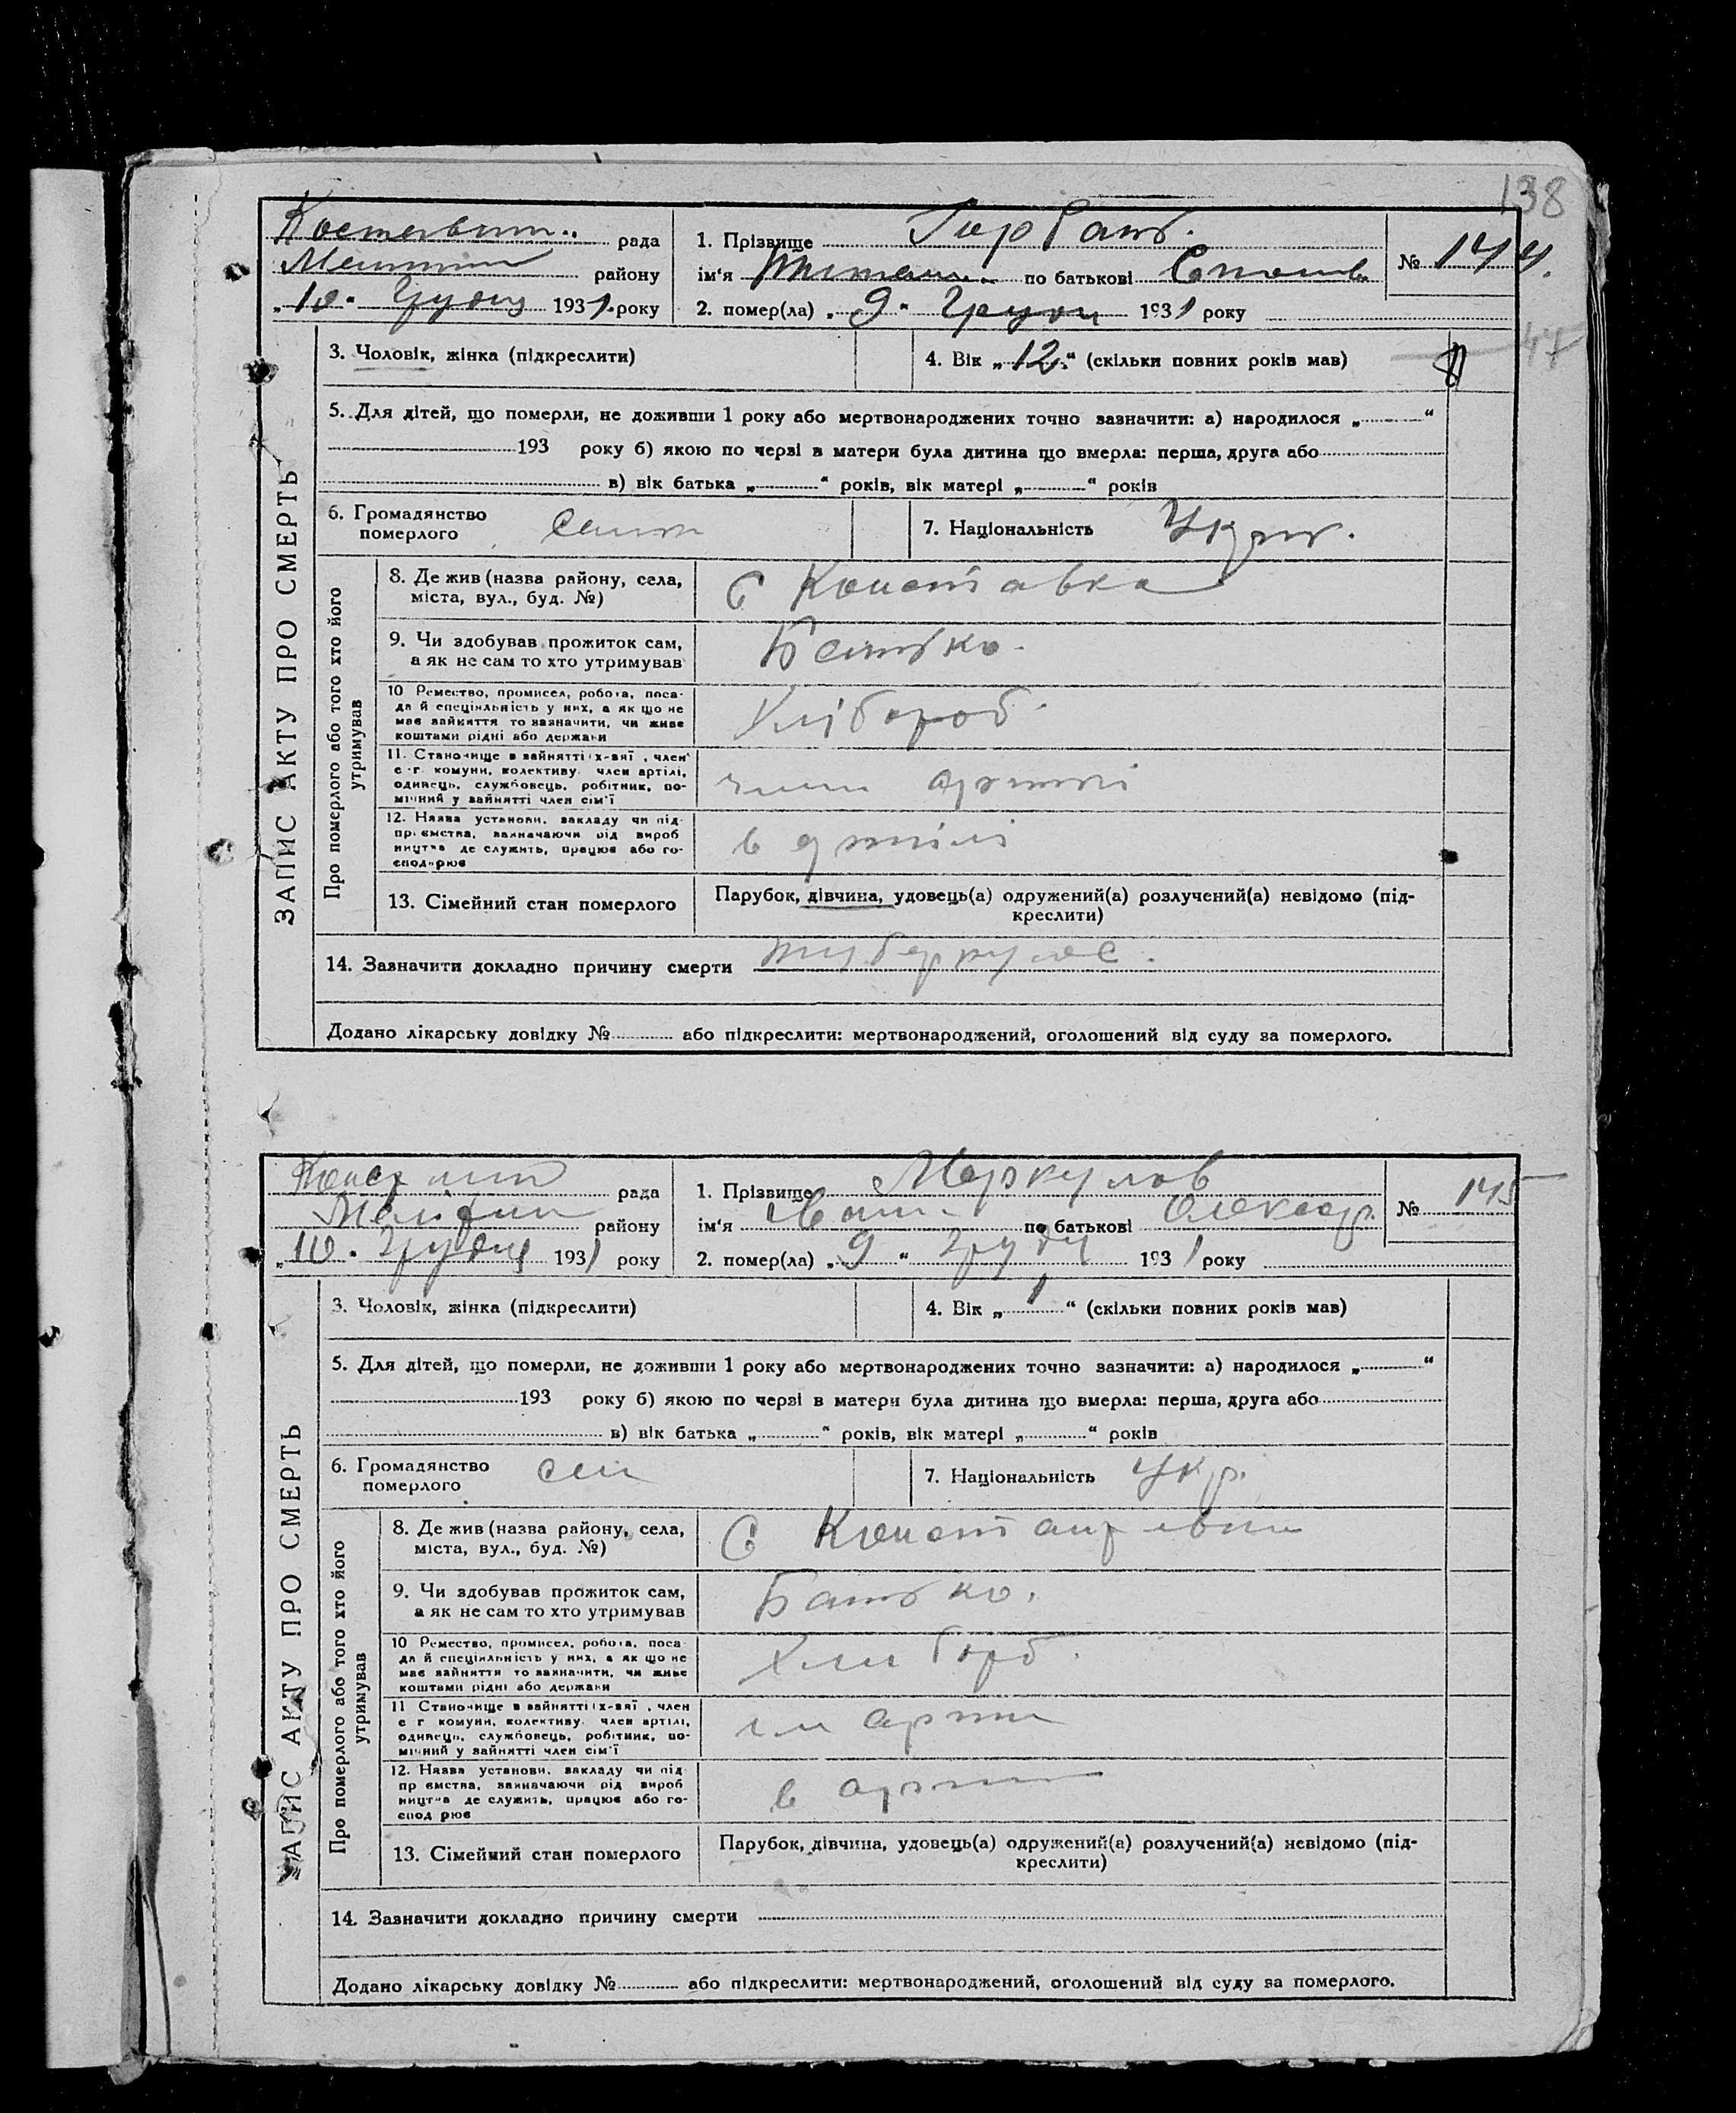 138
рада
районі
„10" Грудня 1931 року
1. Прізвище Горбань.
ім'я по батькові
2. помер(ла) „9" Грудн 1931 року
№ 144.
47
ЗАПИС АКТУ ПРО СМЕРТЬ
3. Чоловік, жінка (підкреслити)
4. Вік „12" (скільки повних років мав)
5. Для дітей, що померли, не доживши 1 року або мертвонароджених точно зазначити: а) народилося „ “
193 року б) якою по черзі в матери була дитина що вмерла: перша, друга або
в) вік батька „ “ років, вік матері „ “ років
6. Громадянство
померлого
7. Національність Укр.
Про померлого або того хто його
утримував
8. Де жив (назва району, села,
міста, вул., буд. №)
С Конставка
9. Чи здобував прожиток сам,
а як не сам то хто утримував
Батько.
10 Ремество, промисел, робота, поса-
да й спеціяльність у них, а як що не
має зайняття то зазначити, чи живе
коштами рідні або держави
Хлібороб.
11. Становище в зайнятті: х-вяї, член
с.-г. комуни, колективу, член артілі,
одинець, службовець, робітник, по-
мічний у зайнятті член сім'ї
член артілі
12. Назва установи, закладу чи під-
приємства, зазначаючи рід вироб
ництва де служить, працює або го-
сподарює
в артілі
13. Сімейний стан померлого
Парубок, дівчина, удовець(а) одружений(а) розлучений(а) невідомо (під-
креслити)
14. Зазначити докладно причину смерти туберкульос.
Додано лікарську довідку № або підкреслити: мертвонароджений, оголошений від суду за померлого.
рада
району
„10" Грудня 1931 року
1. Прізвище Меркулов
ім'я Іван по батькові Олександр.
2. помер(ла) „9“ грудн 1931 року
№ 145
ЗАПИС АКТУ ПРО СМЕРТЬ
3. Чоловік, жінка (підкреслити)
4. Вік „1“ (скільки повних років мав)
5. Для дітей, що померли, не доживши 1 року або мертвонароджених точно зазначити: а) народилося „ “
193 року б) якою по черзі в матери була дитина що вмерла: перша, друга або
в) вік батька „ “ років, вік матері „ “ років
6. Громадянство
померлого
сел
7. Національність Укр.
Про померлого або того хто його
утримував
8. Де жив (назва району, села,
міста, вул., буд. №)
С
9. Чи здобував прожиток сам,
а як не сам то хто утримував
Батько.
10 Ремество, промисел, робота, поса-
да й спеціяльність у них, а як що не
має зайняття то зазначити, чи живе
коштами рідні або держави
11 Становище в зайнятті: х-вяї, член
с г комуни, колективу, член артілі,
одинець, службовець, робітник, по-
мічний у зайнятті член сім'ї
12. Назва установи, закладу чи під-
приємства, зазначаючи рід вироб
ництва де служить, працює або го-
сподарює
13. Сімейний стан померлого
Парубок, дівчина, удовець(а) одружений(а) розлучений(а) невідомо (під-
креслити)
14. Зазначити докладно причину смерти
Додано лікарську довідку № або підкреслити: мертвонароджений, оголошений від суду за померлого.